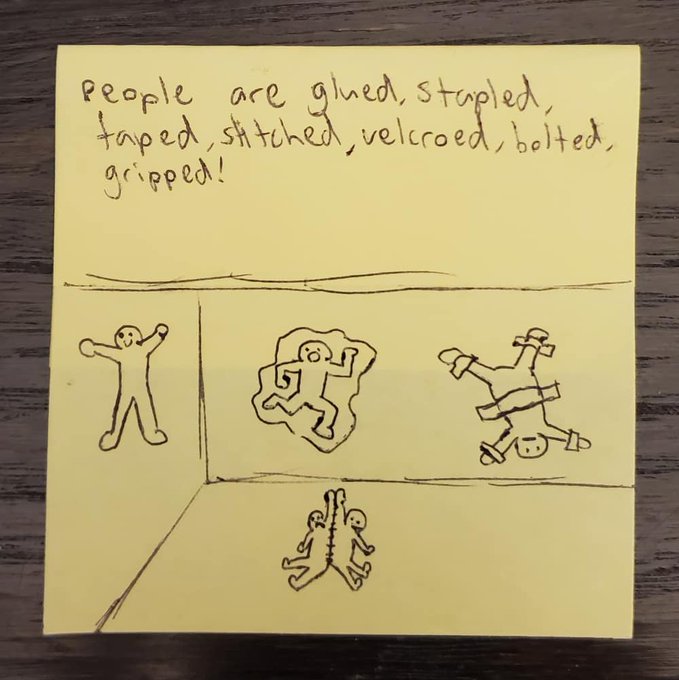 People are glued, stapled,
taped, stitched, velcroed, bolted,
gripped!